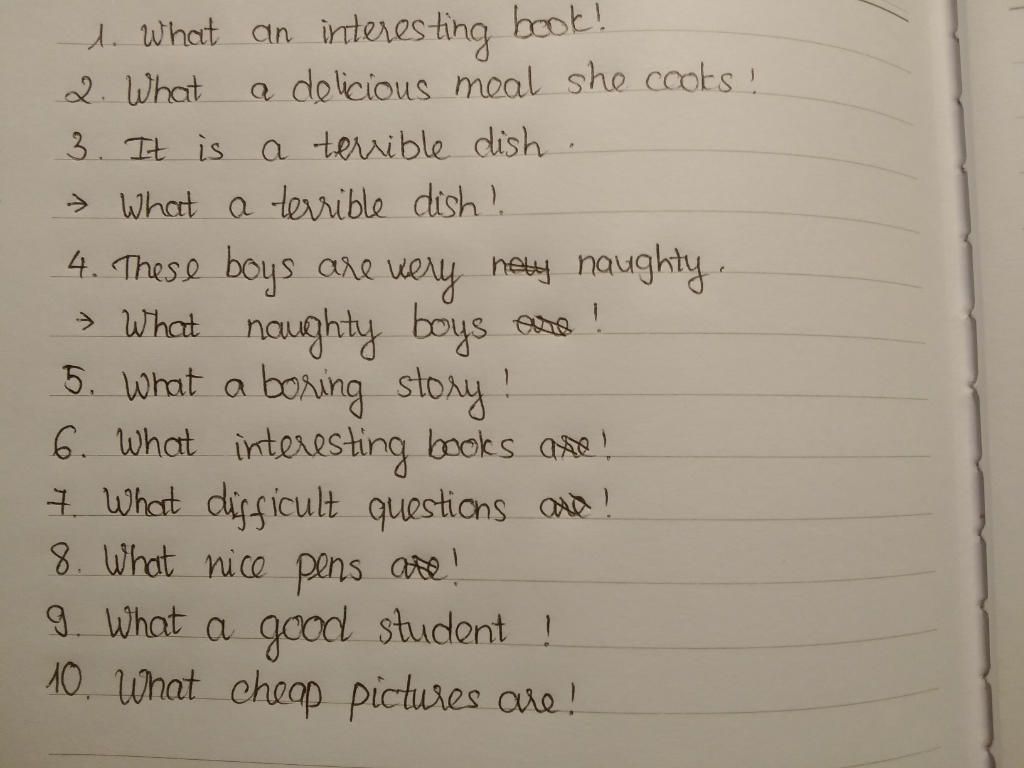 1. What an interesting book!
2. What a delicious meal she cooks!
3. It is a terrible dish.
→ What a terrible dish!
4. These boys are very new naughty.
→ What naughty boys are !
5. What a boring story !
6. What interesting books are!
7. What difficult questions are !
8. What nice pens are!
9. What a good student !
10. What cheap pictures are!